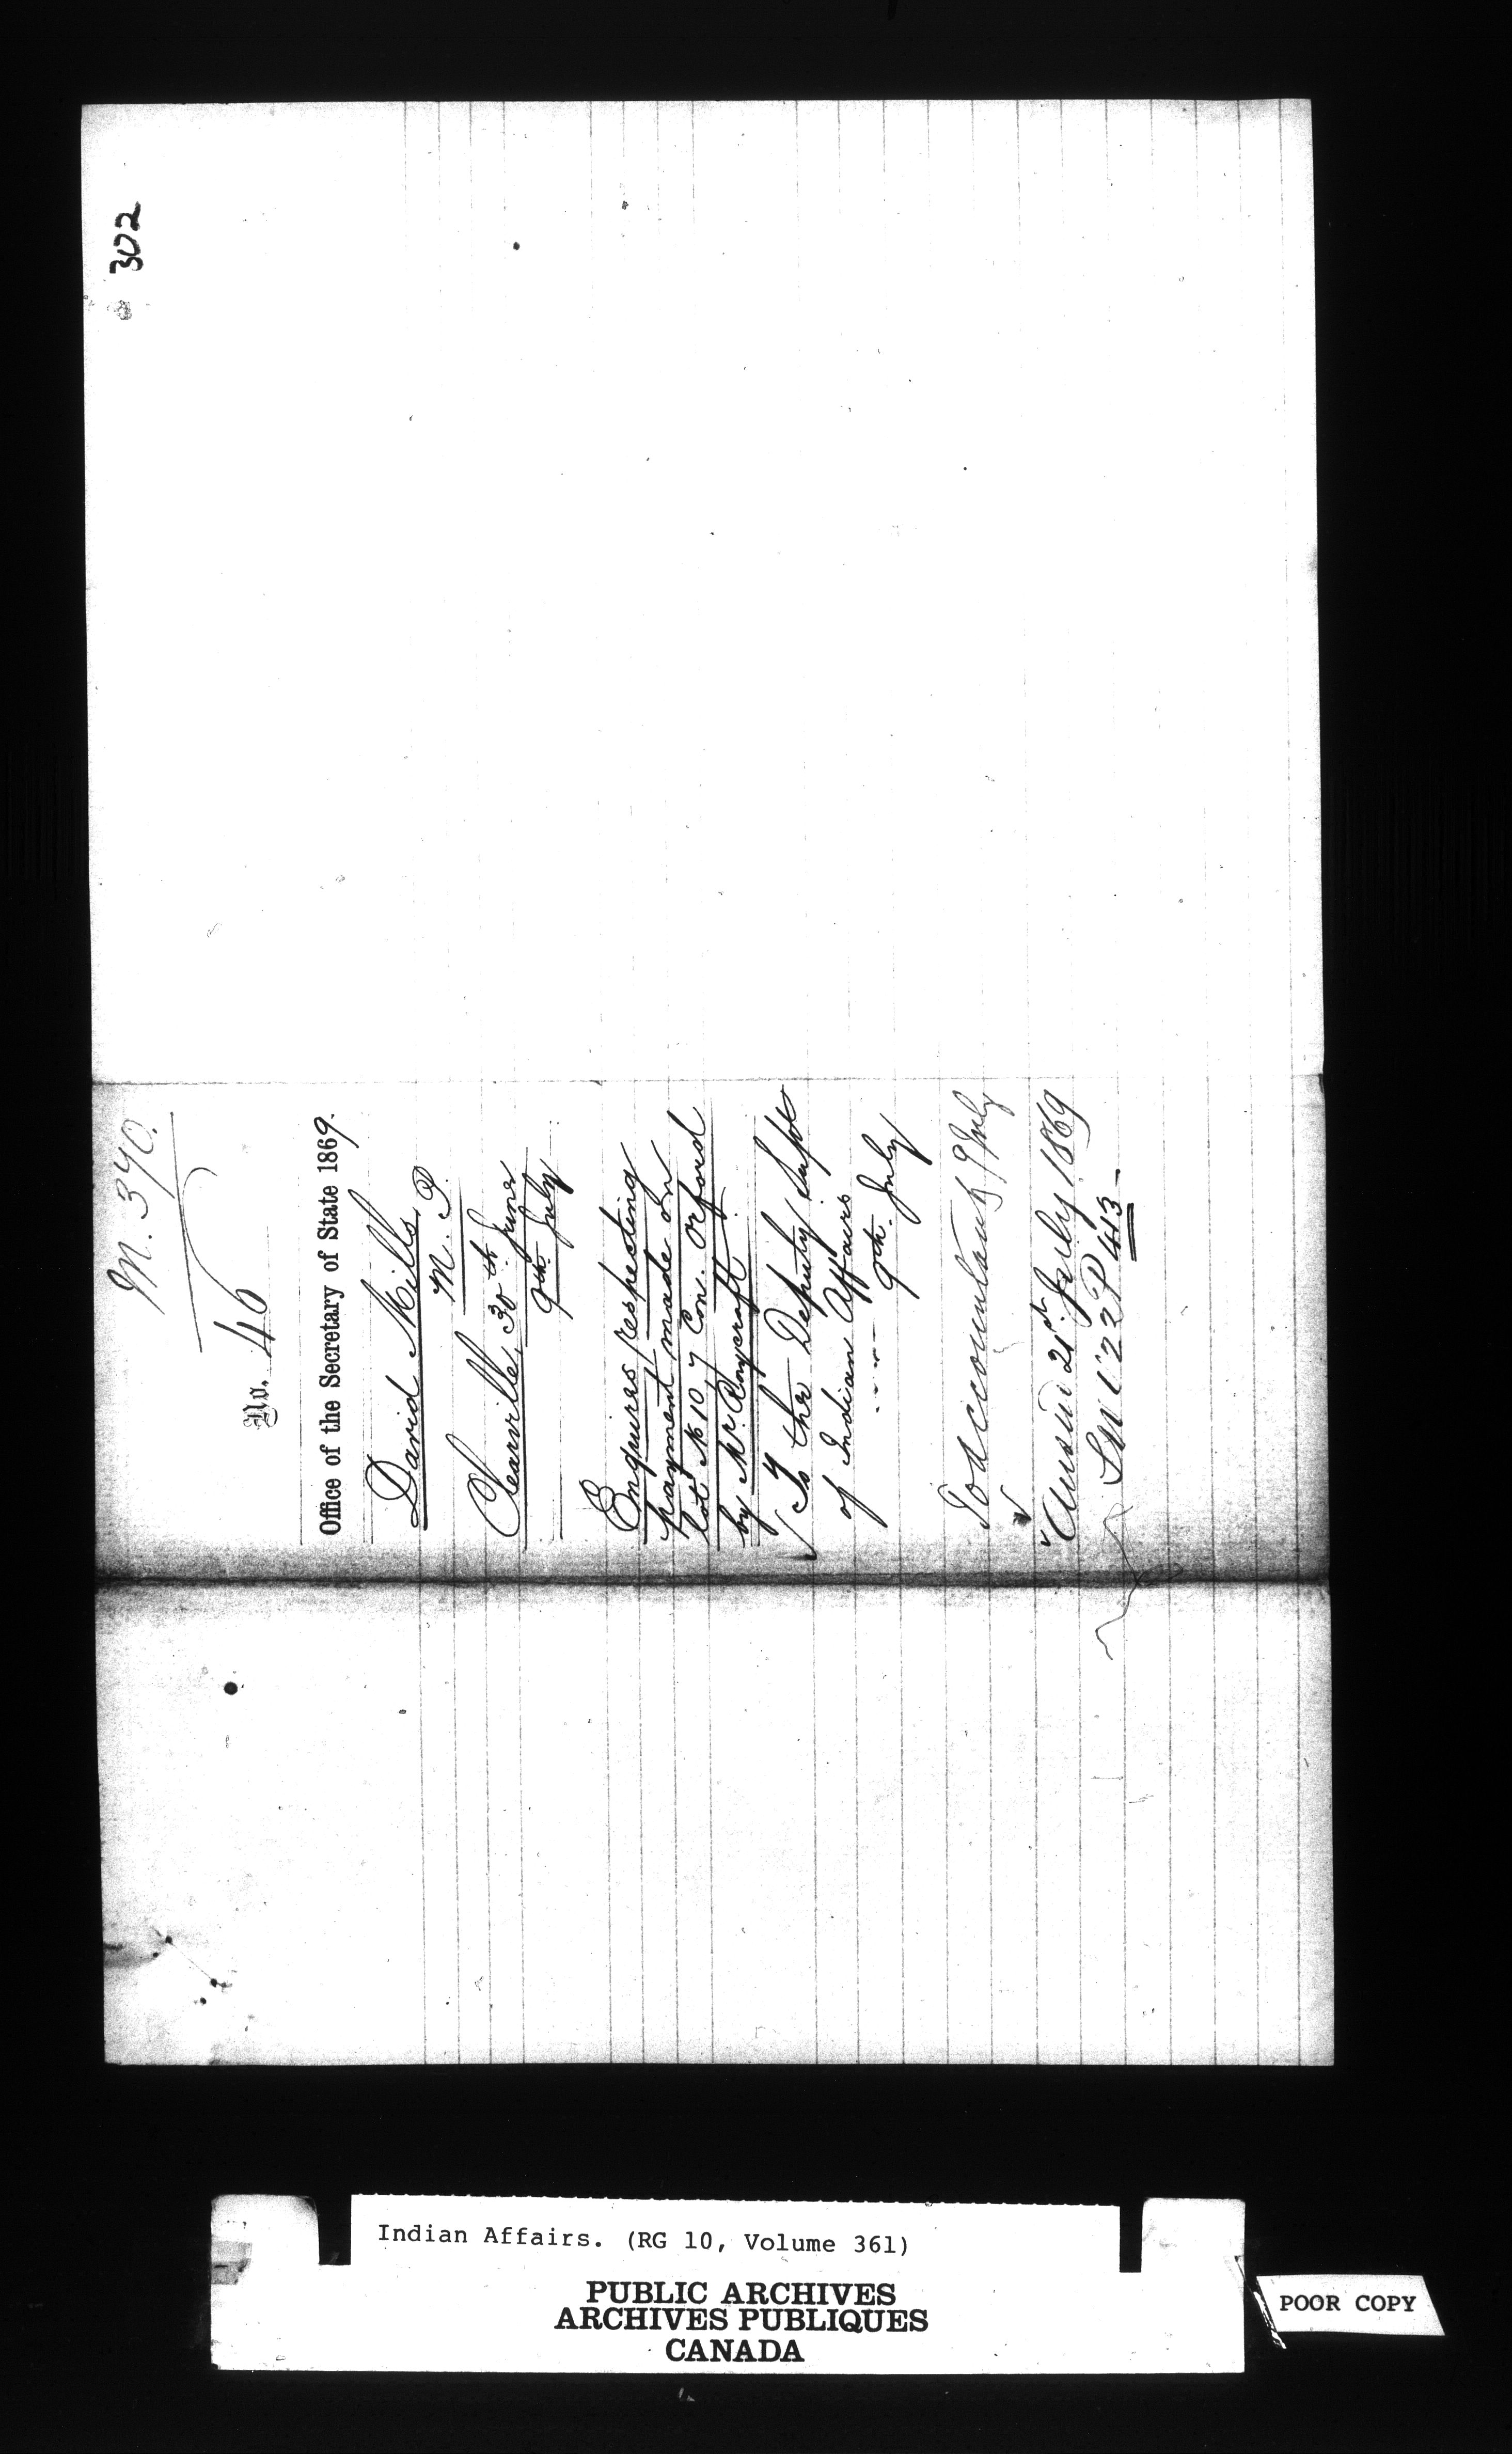 302
M. 370.
No. 46
Office of the Secretary of State 1869.
David Mills,
M. P.
Clearville, 30th June
9th July
Enquires respecting
payment made on
lot No 10 7 Con. Orford
by Mr. Roycraft
To the Deputy Supt
of Indian Affairs
9th July
To accountant 9 July
21st July 1869
P 443
Indian Affairs. (RG 10, Volume 361)
PUBLIC ARCHIVES
ARCHIVES PUBLIQUES
CANADA
POOR COPY